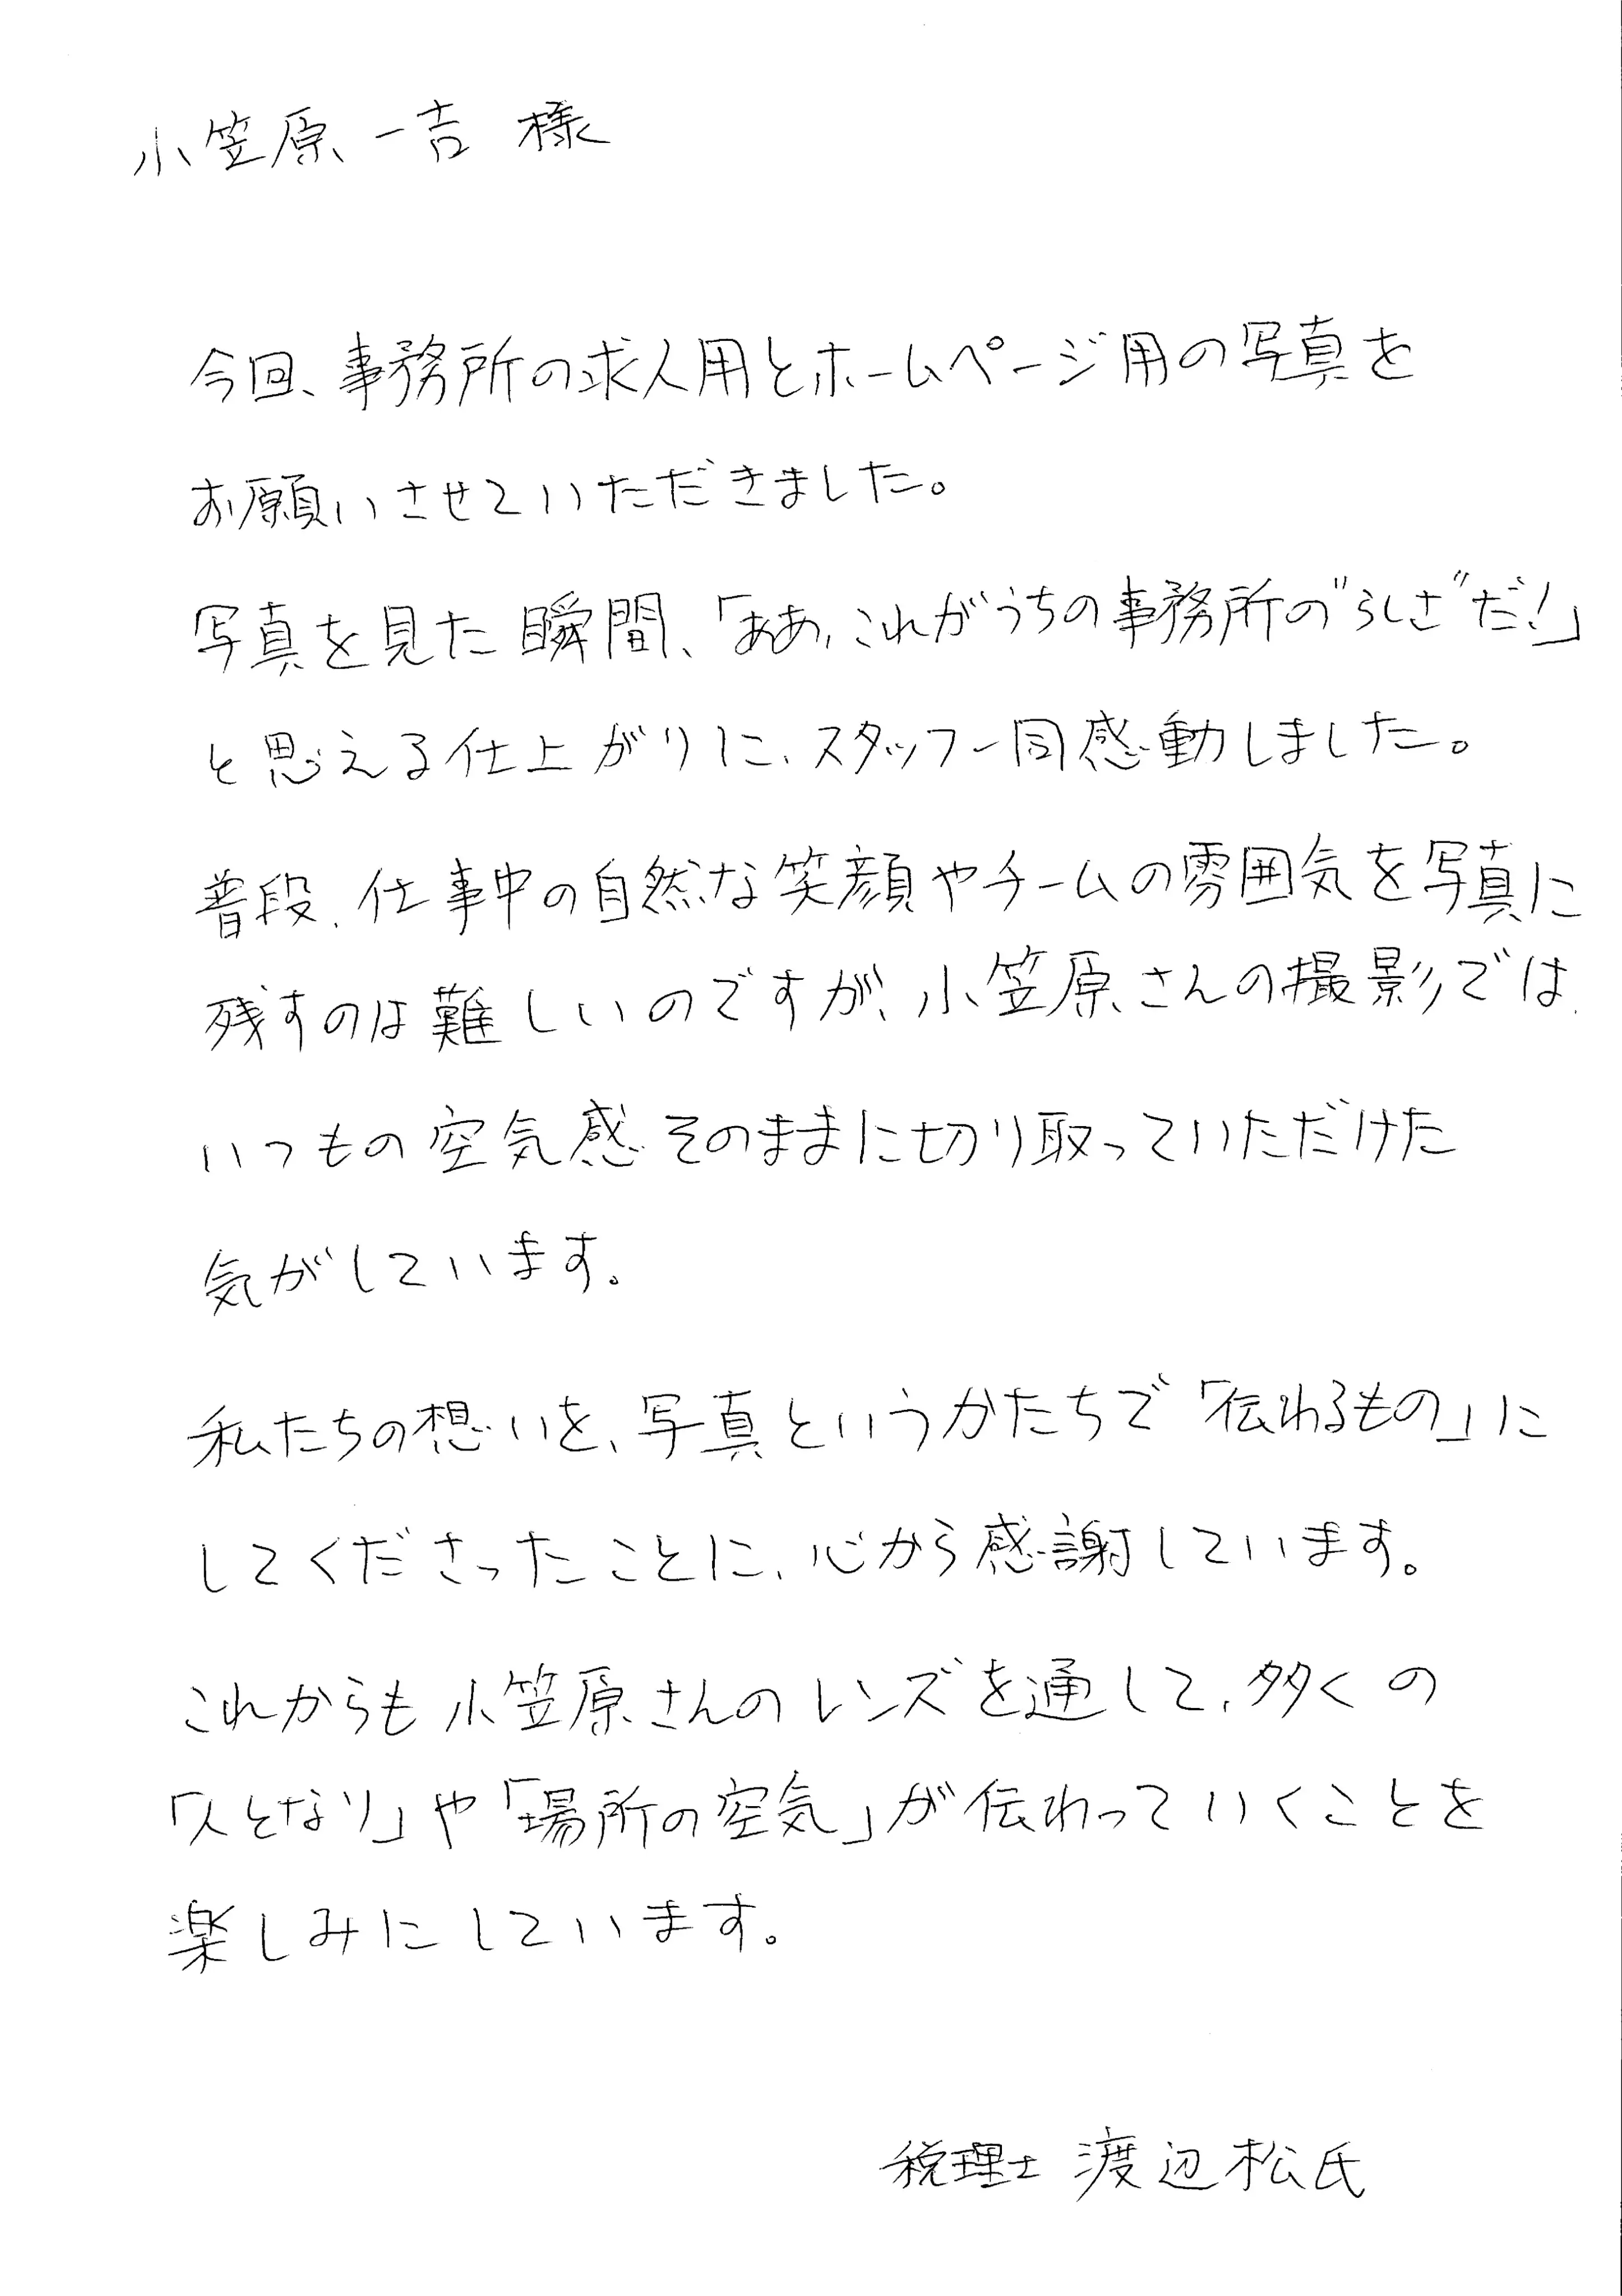 小笠原一吉 様
今回、事務所の求人用とホームページ用の写真を
お願いさせていただきました。
写真を見た瞬間、「ああ、これがうちの事務所の"らしさ"だ!」
と思える仕上がりに、スタッフ一同感動しました。
普段、仕事中の自然な笑顔やチームの雰囲気を写真に
残すのは難しいのですが、小笠原さんの撮影では、
いつもの空気感そのままに切り取っていただけた
気がしています。
私たちの想いを、写真というかたちで「伝わるもの」に
してくださったことに、心から感謝しています。
これからも小笠原さんのレンズを通して、多くの
「人となり」や「場所の空気」が伝わっていくことを
楽しみにしています。
税理士 渡辺松氏